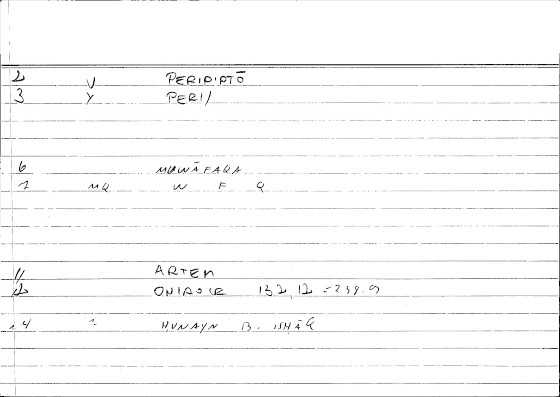 2 V PERIPIPTŌ
3 Y PERI/
6 MUWĀFAQA
7 MU W F Q
11 ARTEM
12 ONIROCR 132,12 = 239.9
14 HUNAYN B. ISHĀQ